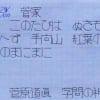 菅家
このたびは ぬさも
へず 手向山 紅葉の
のまにまに
菅原道真 学問の神